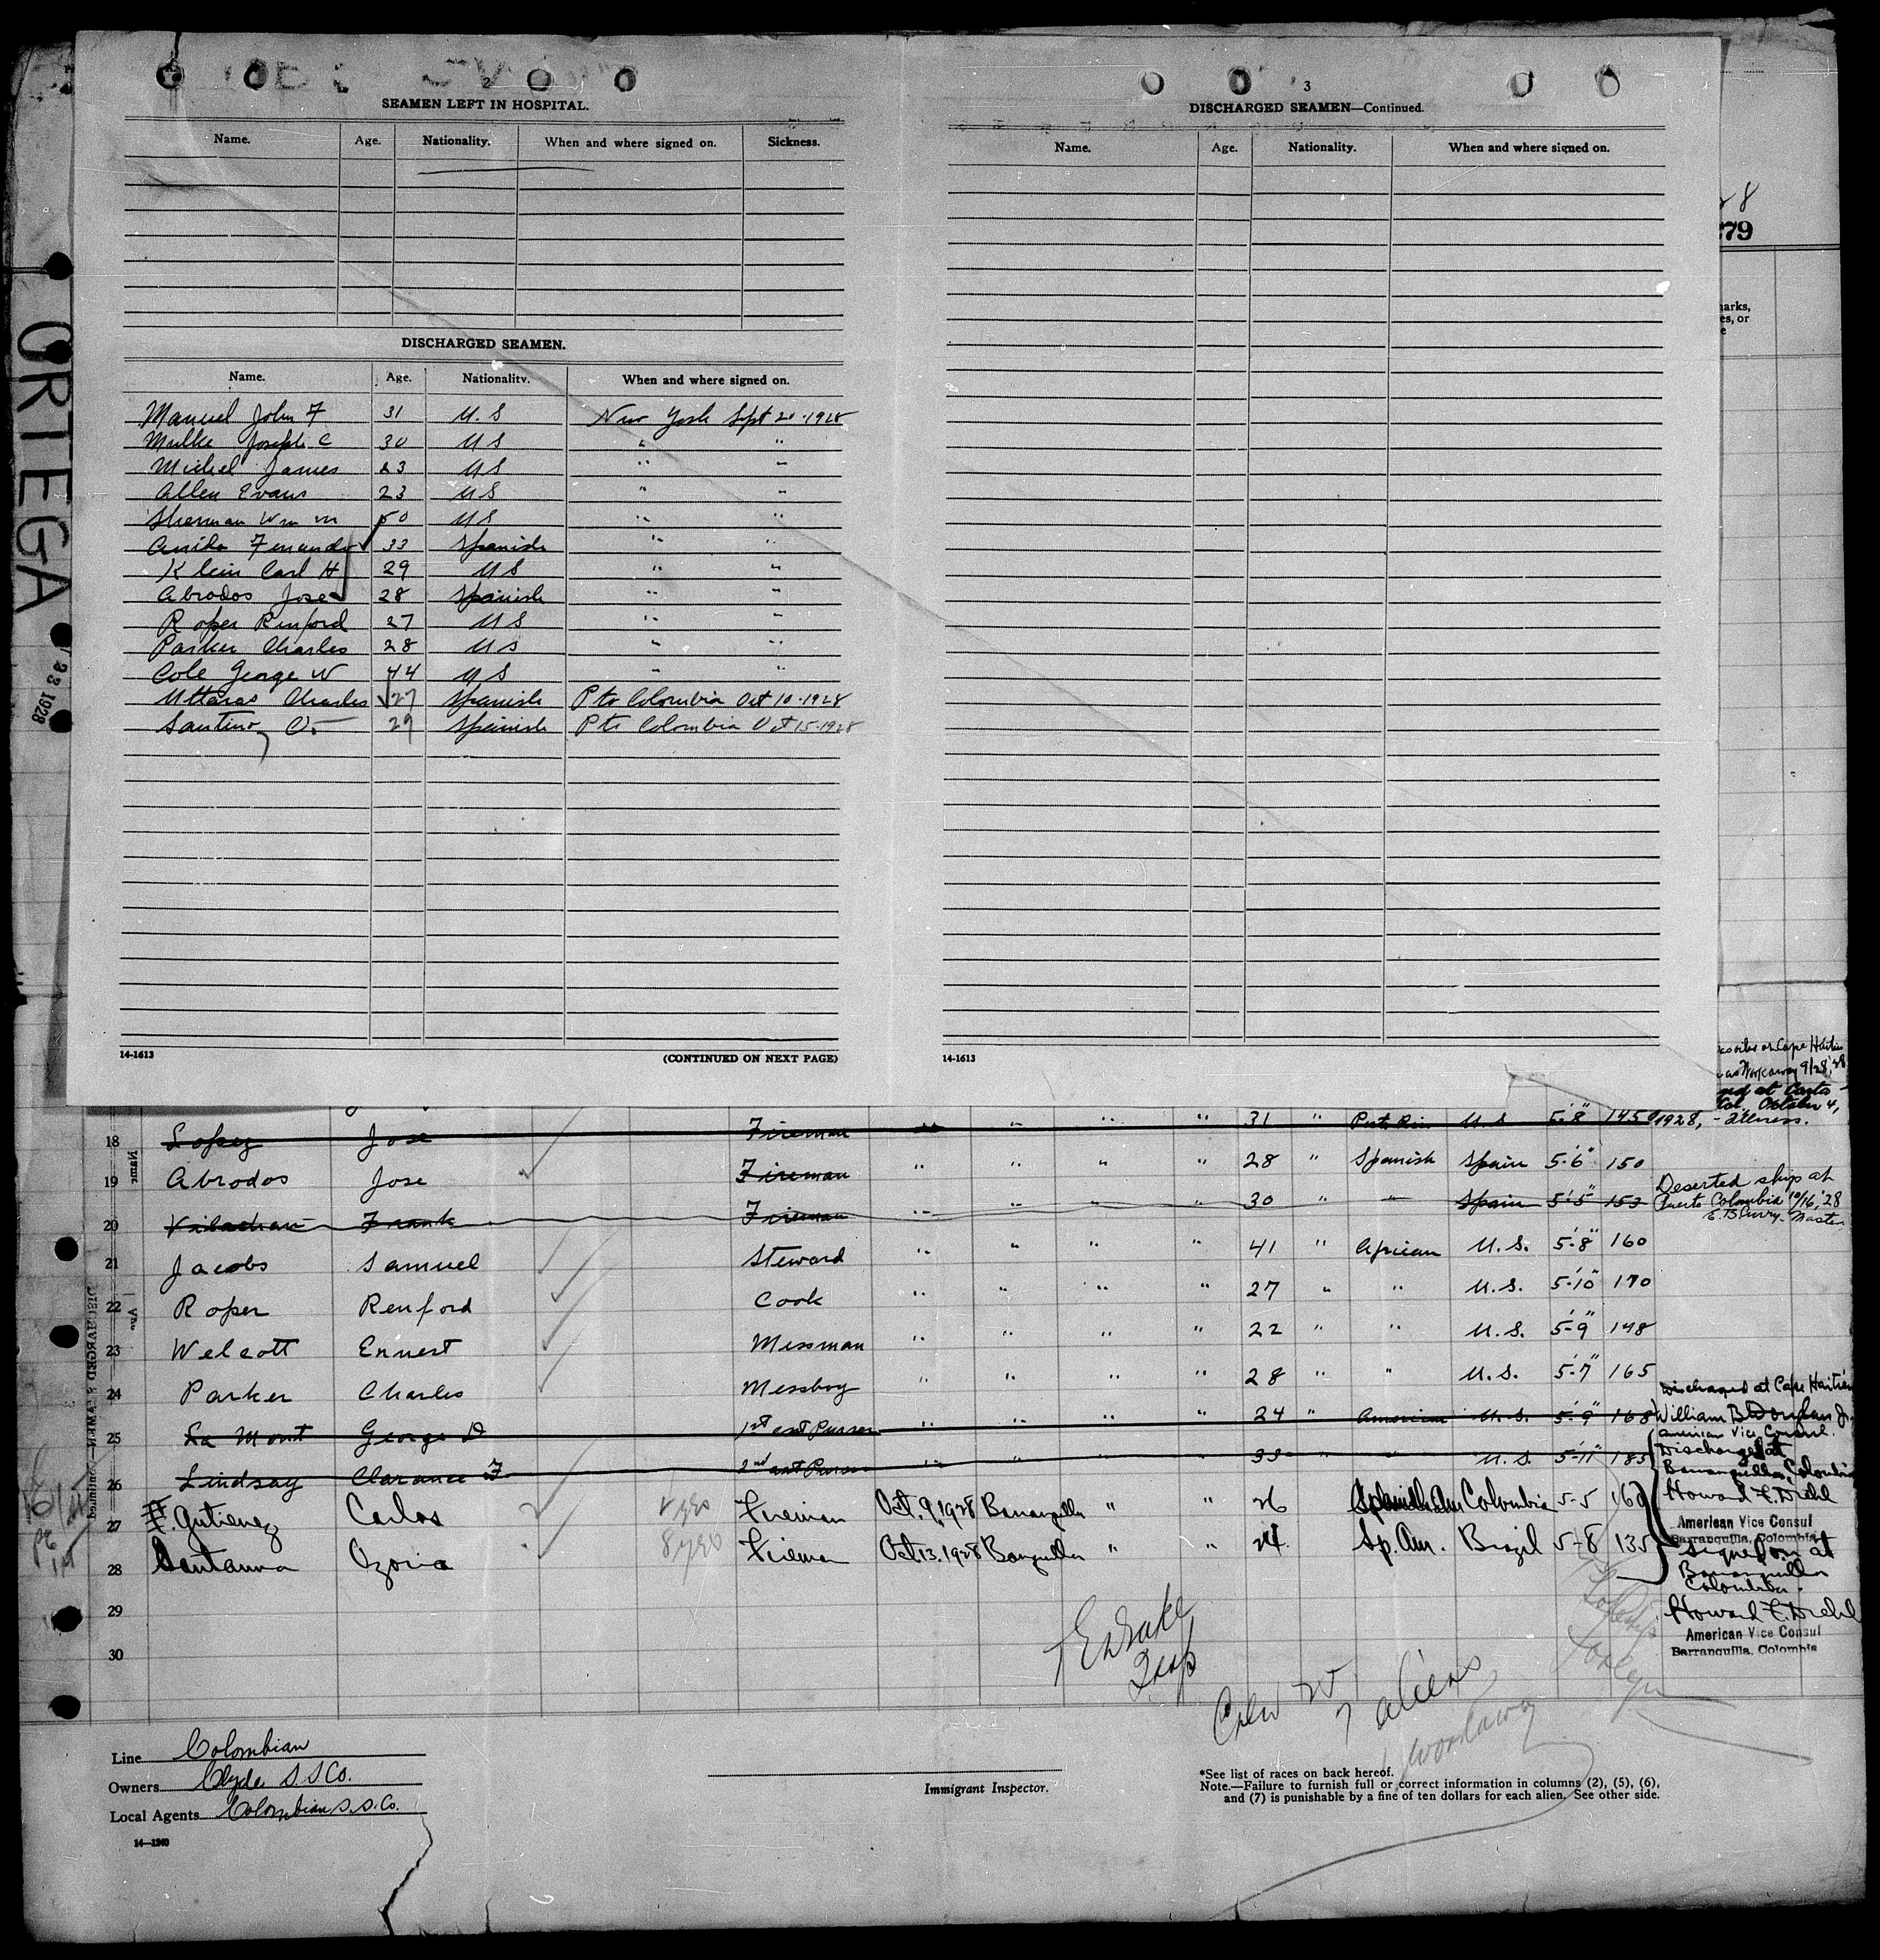 2
SEAMEN LEFT IN HOSPITAL.
Name. Age. Nationality. When and where signed on. Sickness.
DISCHARGED SEAMEN.
Name. Age. Nationality. When and where signed on.
Manuel John F 31 U.S New York Sept 20-1928
Mulke Joseph C 30 US " "
Michel James 23 US " "
Allen Evans 23 US " "
Sherman Wm M 50 US " "
33 Spanish " "
Klein Carl H 29 US " "
Abrodos Jose 28 Spanish " "
Roper Renford 27 US " "
Parker Charles 28 US " "
Cole George W 44 US " "
Charles 27 Spanish Pto Colombia Oct 10-1928
Santino, O. 29 Spanish Pto Colombia Oct 15-1928
14-1613 (CONTINUED ON NEXT PAGE)
3
DISCHARGED SEAMEN—Continued.
Name. Age. Nationality. When and where signed on.
14-1613
28
279
arks,
es, or
e
ORTEGA
23 1928
Cape Haitien
Workaway 9/28/28
at
October 4,
18 Lopez Jose Fireman " " " " 31 " U.S 5'8" 145 1928, - illness.
19 Abrodos Jose Fireman " " " " 28 " Spanish Spain 5'6" 150
20 Frank Fireman " " " " 30 " " Spain 5'5" 153 Deserted ship at
Puerto Colombia 10/16/28
Master
21 Jacobs Samuel Steward " " " " 41 " African U.S. 5'8" 160
22 Roper Renford Cook " " " " 27 " " U.S. 5'10" 170
23 Welcott Ennest Messman " " " " 22 " " U.S. 5'9" 148
24 Parker Charles Messboy " " " " 28 " " U.S. 5'7" 165
25 La Mont George D 1st asst Purser " " " " 24 " American U.S. 5'9" 168 Discharged at Cape Haitien
William B Douglas Jr.
American Vice Consul.
26 Lindsay Clarance F 2nd asst Purser " " " " 33 " " U.S. 5'11" 185 Discharged at
Barranquilla, Colombia
Howard F. Diehl
American Vice Consul
Barranquilla, Colombia
27 F. Gutierrez Carlos Fireman Oct. 9, 1928 Barranquilla " " 26 Colombia 5-5 160
28 Santanna Ozoria 8 yrs Fireman Oct. 13. 1928 Barranquilla " " 24 Sp. Am. Brazil 5-8 135
Signed on at
Barranquilla
Colombia.
Howard F. Diehl
American Vice Consul
Barranquilla, Colombia
29
30
Crew
7 aliens
Workaway
Line Colombian
Owners Clyde S S Co.
Local Agents Colombian S. S. Co.
14—1240
Immigrant Inspector.
*See list of races on back hereof.
Note.—Failure to furnish full or correct information in columns (2), (5), (6),
and (7) is punishable by a fine of ten dollars for each alien. See other side.